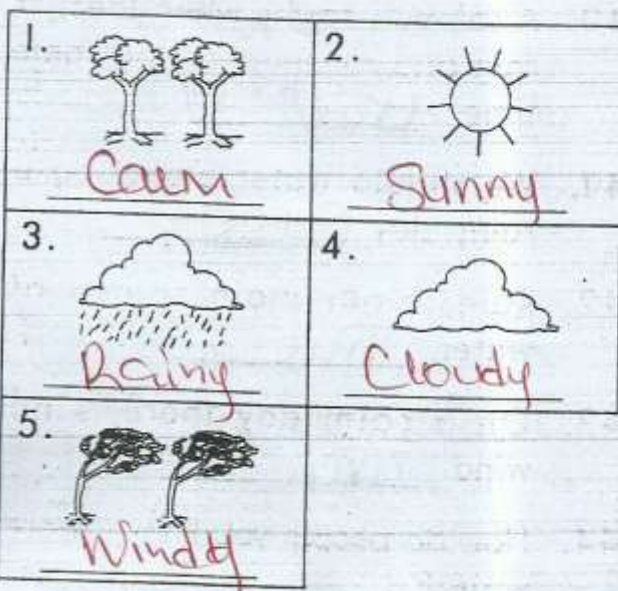 1.
Calm
2.
Sunny
3.
Rainy
4.
Cloudy
5.
Windy